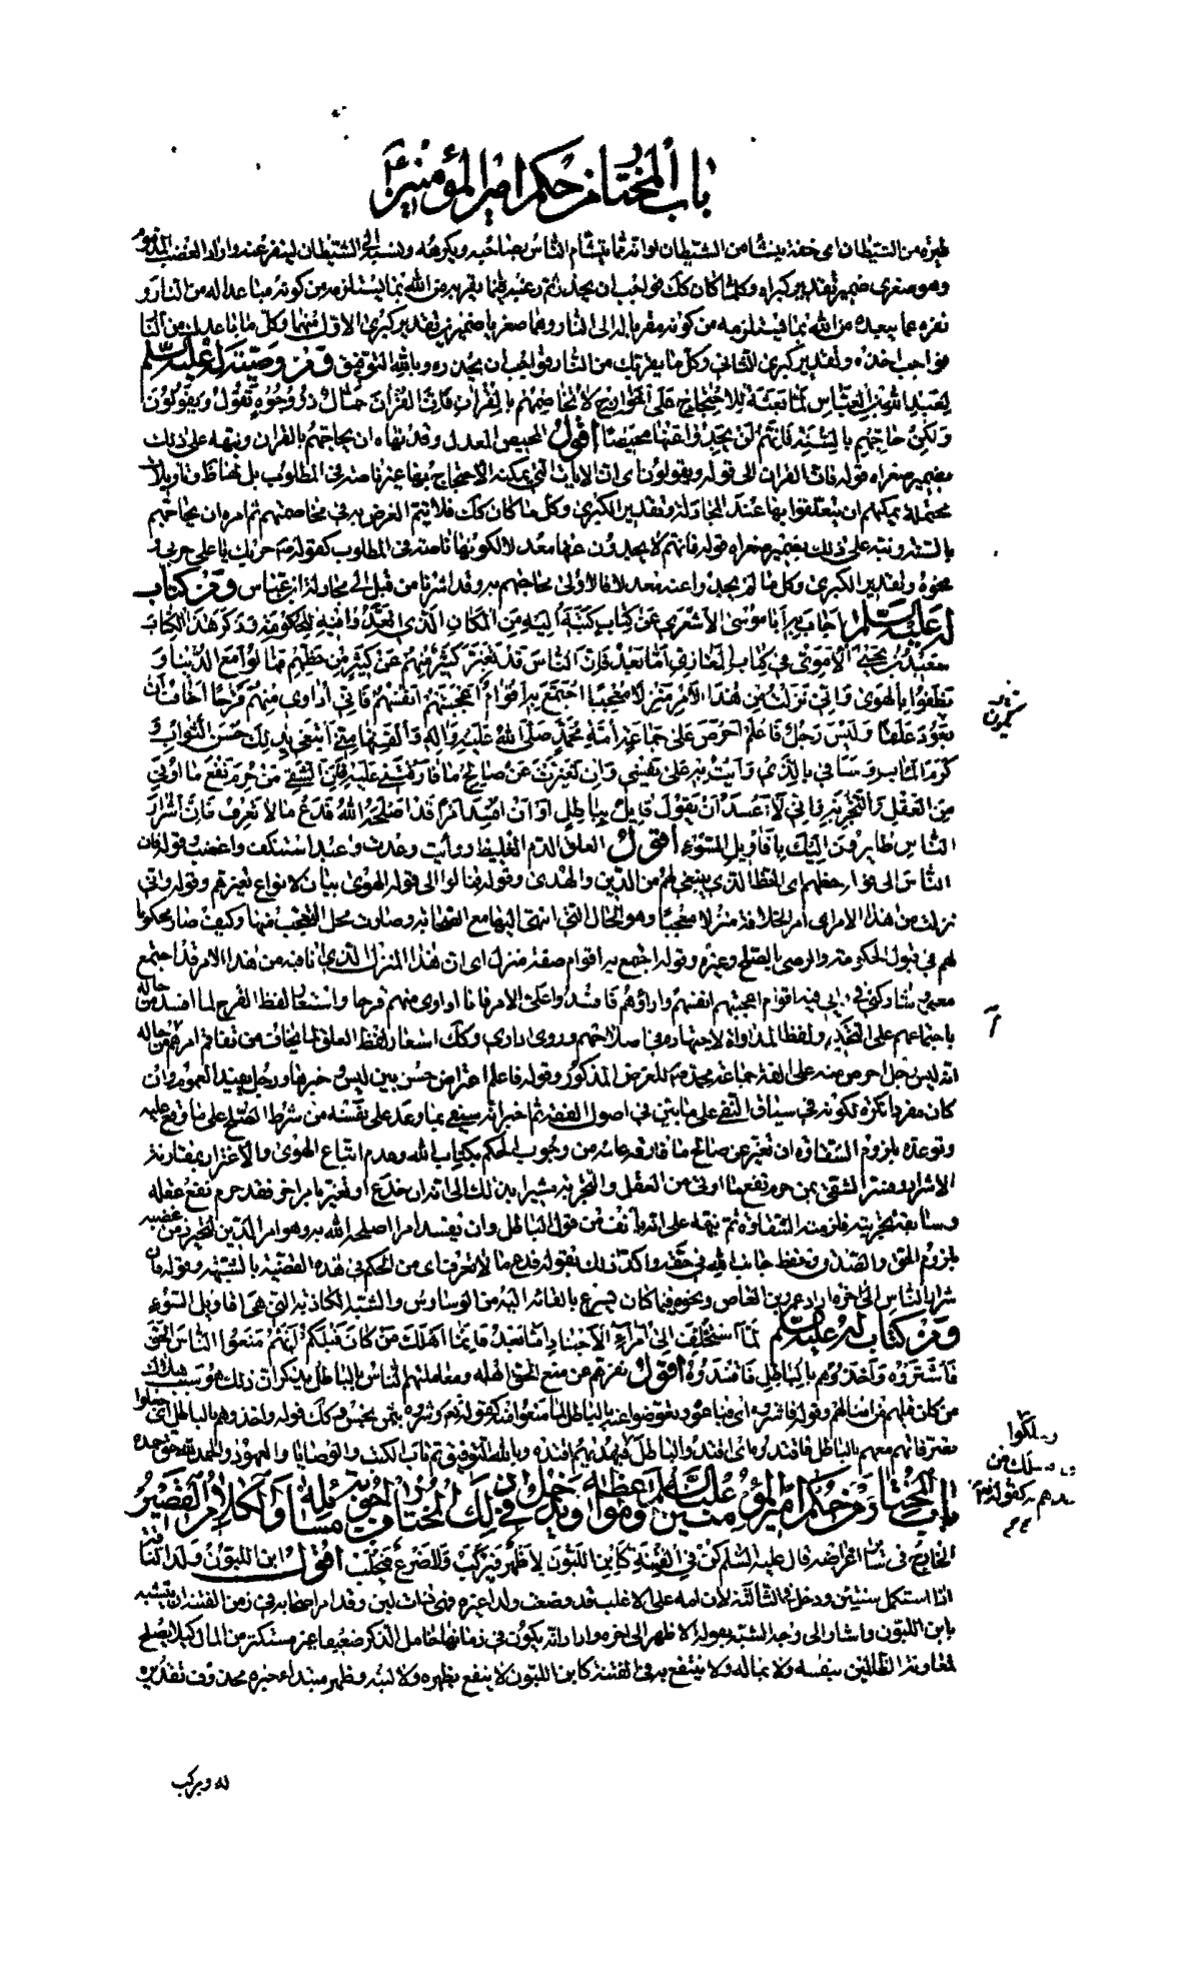 باب المختار من حكم امير المؤمنين ع
طيرة من الشيطان اى خفة ينشأ من الشيطان لو انه ربما يتشأم الناس بصاحبه ويكرهه وينسبه الى الشيطان لينفر عنه واراد الغضب المذموم
وهو صغرى ضمير تقدير كبراه وكلما كان كك فواجب ان يحذر ثم رغبه فيما يقربه من الله بما يستلزمه من كونه مباعدا له من النار و
نفره عما يبعده من الله بما يستلزمه من كونه مقربا له الى النار وهما صغريا ضميرين تقدير كبرى الاول منهما وكل ما باعدك من النار
فواجب اخذه وتقدير كبرى الثانى وكل ما يقربك من النار فواجب ان يحذر وبالله التوفيق ومن وصيته له عليه السلم
لعبد الله بن العباس لما بعثه للاحتجاج على الخوارج لا تخاصمهم بالقران فان القران حمال ذو وجوه تقول ويقولون
ولكن حاجهم بالسنة فانهم لن يجدوا عنها محيصا اقول المحيص المعدل وقد نهاه ان يحاجهم بالقران ونبهه على ذلك
بضمير صغراه قوله فان القران الى قوله ويقولون اى ان الايات التى يمكنه الاحتجاج بها غير ناصة فى المطلوب بل لها ظ وتاويلات
محتملة يمكنهم ان يتعلقوا بها عند المجادلة وتقدير الكبرى وكل ما كان كك فلا يتم الغرض به فى مخاصمتهم ثم امره ان يحاجهم
بالسنة ونبه على ذلك بضمير صغراه قوله فانهم لا يجدون عنها معدلا لكونها ناصة فى المطلوب كقوله ص حربك يا على حربى و
نحوه وتقدير الكبرى وكل ما لم يجدوا عنه معدلا فالاولى محاجتهم به وقد اشرنا من قبل الى مجادلة ابن عباس ومن كتاب
له عليه السلم اجاب به ابا موسى الاشعرى عن كتاب كتبه اليه من المكان الذى اتعدوا فيه للحكومة وذكر هذا الكتاب
سعيد بن يحيى الاموى فى كتاب المغازى اما بعد فان الناس قد تغير كثير منهم عن كثير من حظهم فمالوا مع الدنيا و
نطقوا بالهوى وانى نزلت من هذا الامر منزلا معجبا اجتمع به اقوام اعجبتهم انفسهم فانى اداوى منهم قرحا اخاف ان
يعود علقا وليس رجل فاعلم احرص على جماعة امة محمد صلى الله عليه واله والفتها منى ابتغى بذلك حسن الثواب و
كرم الماب وسافى بالذى وايت به على نفسى وان تغيرت عن صالح ما فارقتنى عليه فان الشقى من حرم نفع ما اوتى
من العقل والتجربة وانى لاعبد ان يقول قايل بباطل او ان افسد امرا قد اصلحه الله فدع ما لا تعرف فان شرار
الناس طايرون اليك باقاويل السوء اقول العلق الدم الغليظ ووأيت وعدت واعبد استنكف واغضب وقوله فان
الناس الى قوله حظهم اى الحظ الذى ينبغى لهم من الدين والهدى وقوله فمالوا الى قوله الهوى بيان لانواع تغيرهم وقوله وانى
نزلت من هذا الامر اى امر الخلافة منزلا معجبا وهو الحال التى انتهى اليها مع الصحابة وصارت محل التعجب منها وكيف صار محكوما
لهم فى قبول الحكومة والرضى بالصلح وغيره وقوله اجتمع به اقوام صفة منزل اى ان هذا المنزل الذى انا فيه من هذا الامر قد اجتمع
معى وشاركنى فى رايى فيه اقوام اعجبتهم انفسهم واراؤهم فافسدوا على الامر فانا اداوى منهم قرحا واستعار لفظ القرح لما افسد من حاله
باجتماعهم على التحكيم ولفظ المداواة لاجتهاده فى اصلاحهم وروى ادارى وكك استعار لفظ العلق لما يخاف من تفاقم امرهم من حاله
انه ليس رجل احرص منه على الفة جماعة محمد ص للغرض المذكور وقوله فاعلم اعتراض حسن بين ليس وخبرها ورجل يفيد العموم وان
كان مفردا نكرة لكونه فى سياق النفى على ما بين فى اصول الفقه ثم اخبر انه سيفى بما وعد على نفسه من شرط الصلح على ما وقع عليه
وتوعده بلزوم الشقاوة ان تغير عن صالح ما فارقه عليه من وجوب الحكم بكتاب الله وعدم اتباع الهوى والاغترار بمقارنة
الاشرار وفسر الشقى بمن حرم نفع ما اوتى من العقل والتجربة مشيرا بذلك الى انه ان خدع او تغير بامر اخر فقد حرم نفع عقله
وسابقة تجربته فلزمته الشقاوة ثم نبهه على انه يأنف من قول الباطل وان يفسد امرا اصلحه الله به وهو امر الدين لتحرزه من غضبه
بلزوم الحق والصدق وحفظ جانب الله فى حقه واكد ذلك بقوله فدع ما لا تعرف اى من الحكم فى هذه القضية بالشبهة وقوله فان
شرار الناس الى اخره اراد عمرو بن العاص ونحوه فيما كان يسرع بالقائه اليه من الوساوس والشبه الكاذبة التى هى اقاويل السوء
ومن كتاب له عليه السلم لما استخلف الى امراء الاجناد اما بعد فانما اهلك من كان قبلكم انهم منعوا الناس الحق
فاشتروه واخذوهم بالباطل فاقتدوه اقول نفرهم عن منع الحق اهله ومعاملتهم الناس بالباطل بذكر ان ذلك هو سبب هلاك
من كان قبلهم من امثالهم وقوله فاشتروه اى فباعوه وتعوضوا عنه بالباطل لما منعوا منه كقوله تعم وشروه بثمن بخس وكك قوله واخذوهم بالباطل اى جعلوا
تصرفاتهم معهم بالباطل فاقتدوه اى اقتدوا الباطل كقوله فبهديهم اقتده وبالله التوفيق تم باب الكتب والوصايا والعهود والحمد لله حق حمده
باب المختار من حكم امير المؤمنين عليه السلم ومواعظه ويدخل فى ذلك المختار من اجوبة مسائله والكلام القصير
الخارج فى سائر اغراضه قال عليه السلم كن فى الفتنة كابن اللبون لا ظهر فيركب ولا ضرع فيحلب اقول ابن اللبون ولد الناقة
اذا استكمل سنتين ودخل فى الثالثة لان امه على الاغلب قد وضعت ولدا غيره فهى ذات لبن وقد امر اصحابه فى زمن الفتنة ان يتشبه
بابن اللبون واشار الى وجه الشبه بقوله لا ظهر الى اخره واراد انه يكون فى زمانها خامل الذكر ضعيفا غير مستكثر من المال كيلا يصلح
لمعاونة الظالمين بنفسه ولا بماله ولا ينتفع به فى الفتنة كابن اللبون لا ينفع بظهره ولا لبنه وظهر مبتداء خبره محذوف تقديره
له ويركب